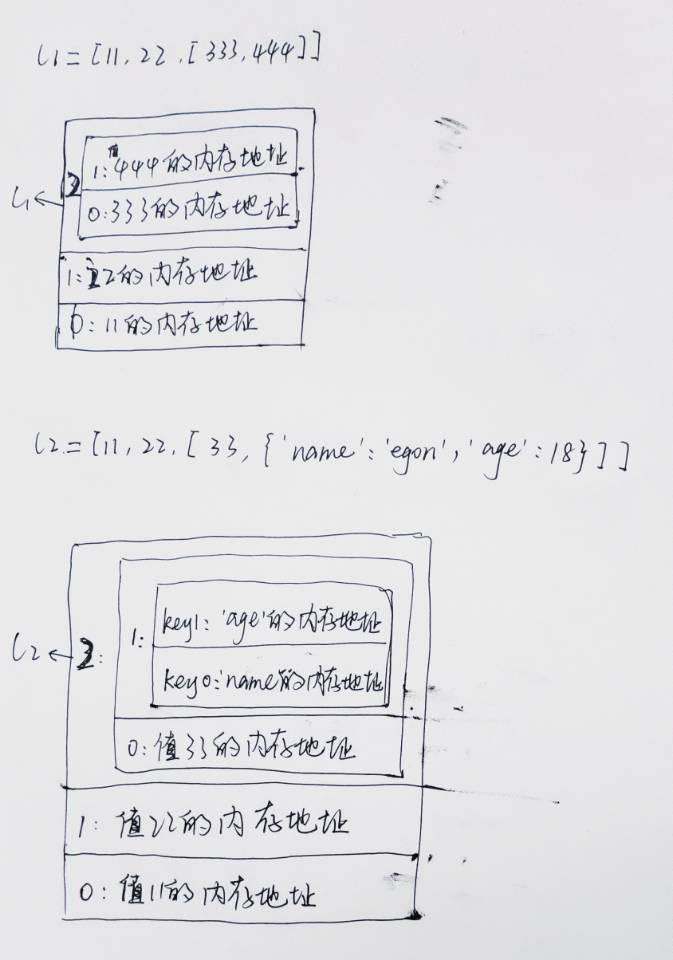 l1 = [11, 22, [333, 444]]
值
1: 444的内存地址
2
l1
0: 333的内存地址
1: 22的内存地址
0: 11的内存地址
l2 = [11, 22, [33, {'name': 'egon', 'age': 18}]]
key1: 'age'的内存地址
1:
l2
2:
key0: 'name'的内存地址
0: 值33的内存地址
1: 值22的内存地址
0: 值11的内存地址